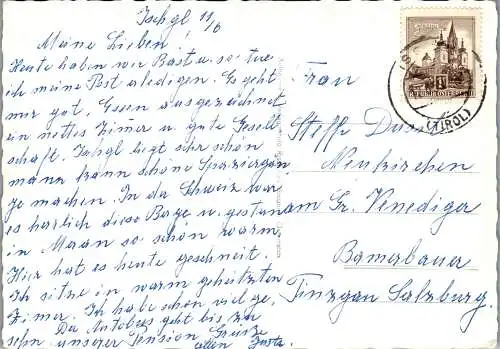 Ischgl 11/6
Meine Lieben!
Heute haben wir Rast u. so tue
ich meine Post erledigen. Es geht
mir gut, Essen ausgezeichnet
ein nettes Zimer u. gute Gesell
schaft. Ischgl liegt sehr schön
mann kann schöne Spaziergän
ge machen. In da Schweiz war
es herlich diese Berge u. gestan
in Meran so schön warm,
Hier hat es heute geschneit.
Ich sitze in warm geheitzten
Zimer. Ich habe schön viel ge
sehn
Da Autobus geht bis zur
unserer Pension Grüsse
allen
Frau
Steffi
Neukirchen
am Gr. Venediger
Bamerbauer
Pinzgau Salzburg.
(TIROL)